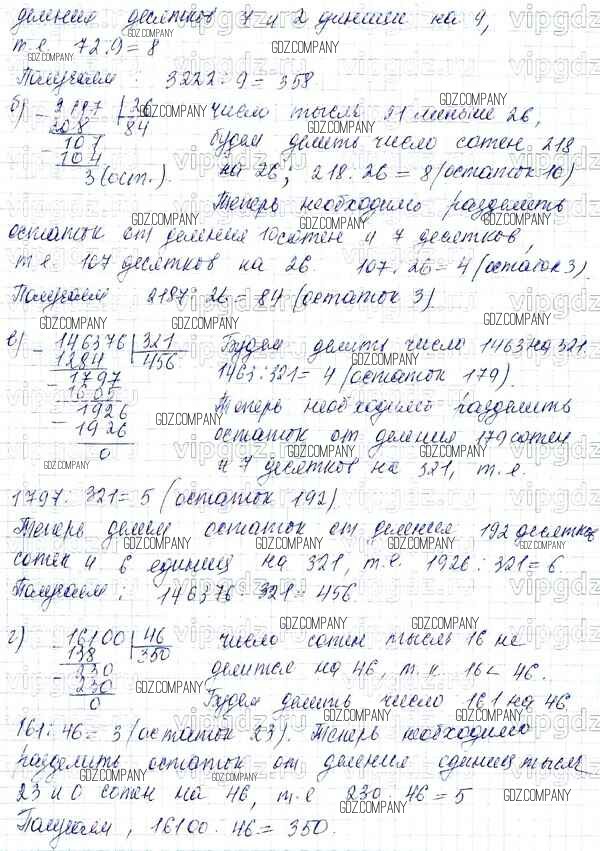 деления десятков 7 и 2 единиц на 9,
т.е. 72:9=8
Получаем: 3222:9=358
б) 2187 | 26 число тысяч 21 меньше 26,
208 84 будем делить число сотен 218
107 на 26; 218:26=8 (остаток 10)
104
3 (ост.). Теперь необходимо разделить
остаток от деления 10 сотен и 7 десятков,
т.е. 107 десятков на 26. 107:26=4 (остаток 3).
Получаем 2187:26=84 (остаток 3)
в) 146376 | 321 Будем делить число 1463 на 321.
1284 456 1463:321=4 (остаток 179).
1797
1605 Теперь необходимо разделить
1926 остаток от деления 179 сотен
1926
0 и 7 десятков на 321, т.е.
1797:321=5 (остаток 192).
Теперь делим остаток от деления 192 десятков
сотен и 6 единиц на 321, т.е. 1926:321=6
Получаем: 146376:321=456.
г) 16100 | 46 число сотен тысяч 16 не
138 350 делится на 46, т.к. 16<46.
230
230 Будем делить число 161 на 46
0
161:46=3 (остаток 23). Теперь необходимо
разделить остаток от деления единиц тысяч
23 и 0 сотен на 46, т.е 230:46=5
Получаем, 16100:46=350.
GDZ.COMPANY
vipgdz.ru